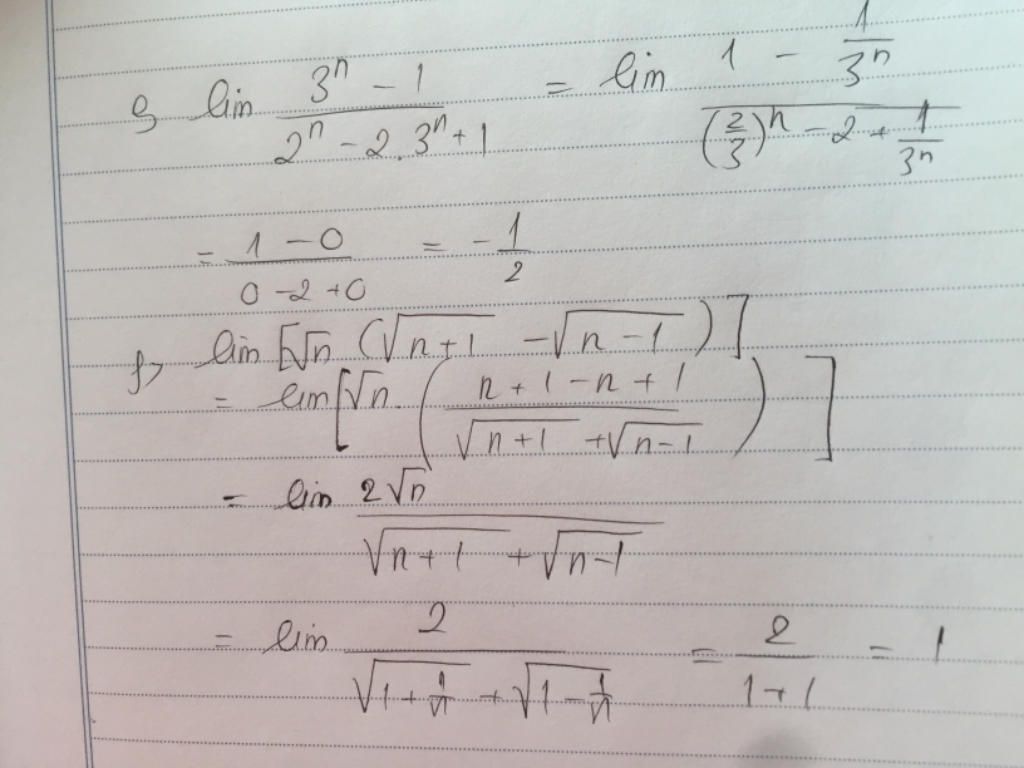 e, lim (3^n - 1)/(2^n - 2.3^n + 1) = lim (1 - 1/3^n)/((2/3)^n - 2 + 1/3^n)
= (1 - 0)/(0 - 2 + 0) = -1/2
f, lim [√n (√(n+1) - √(n-1))]
= lim [√n. ((n+1-n+1)/(√(n+1) + √(n-1)))]
= lim 2√n/(√(n+1) + √(n-1))
= lim 2/(√(1 + 1/n) + √(1 - 1/n)) = 2/(1+1) = 1